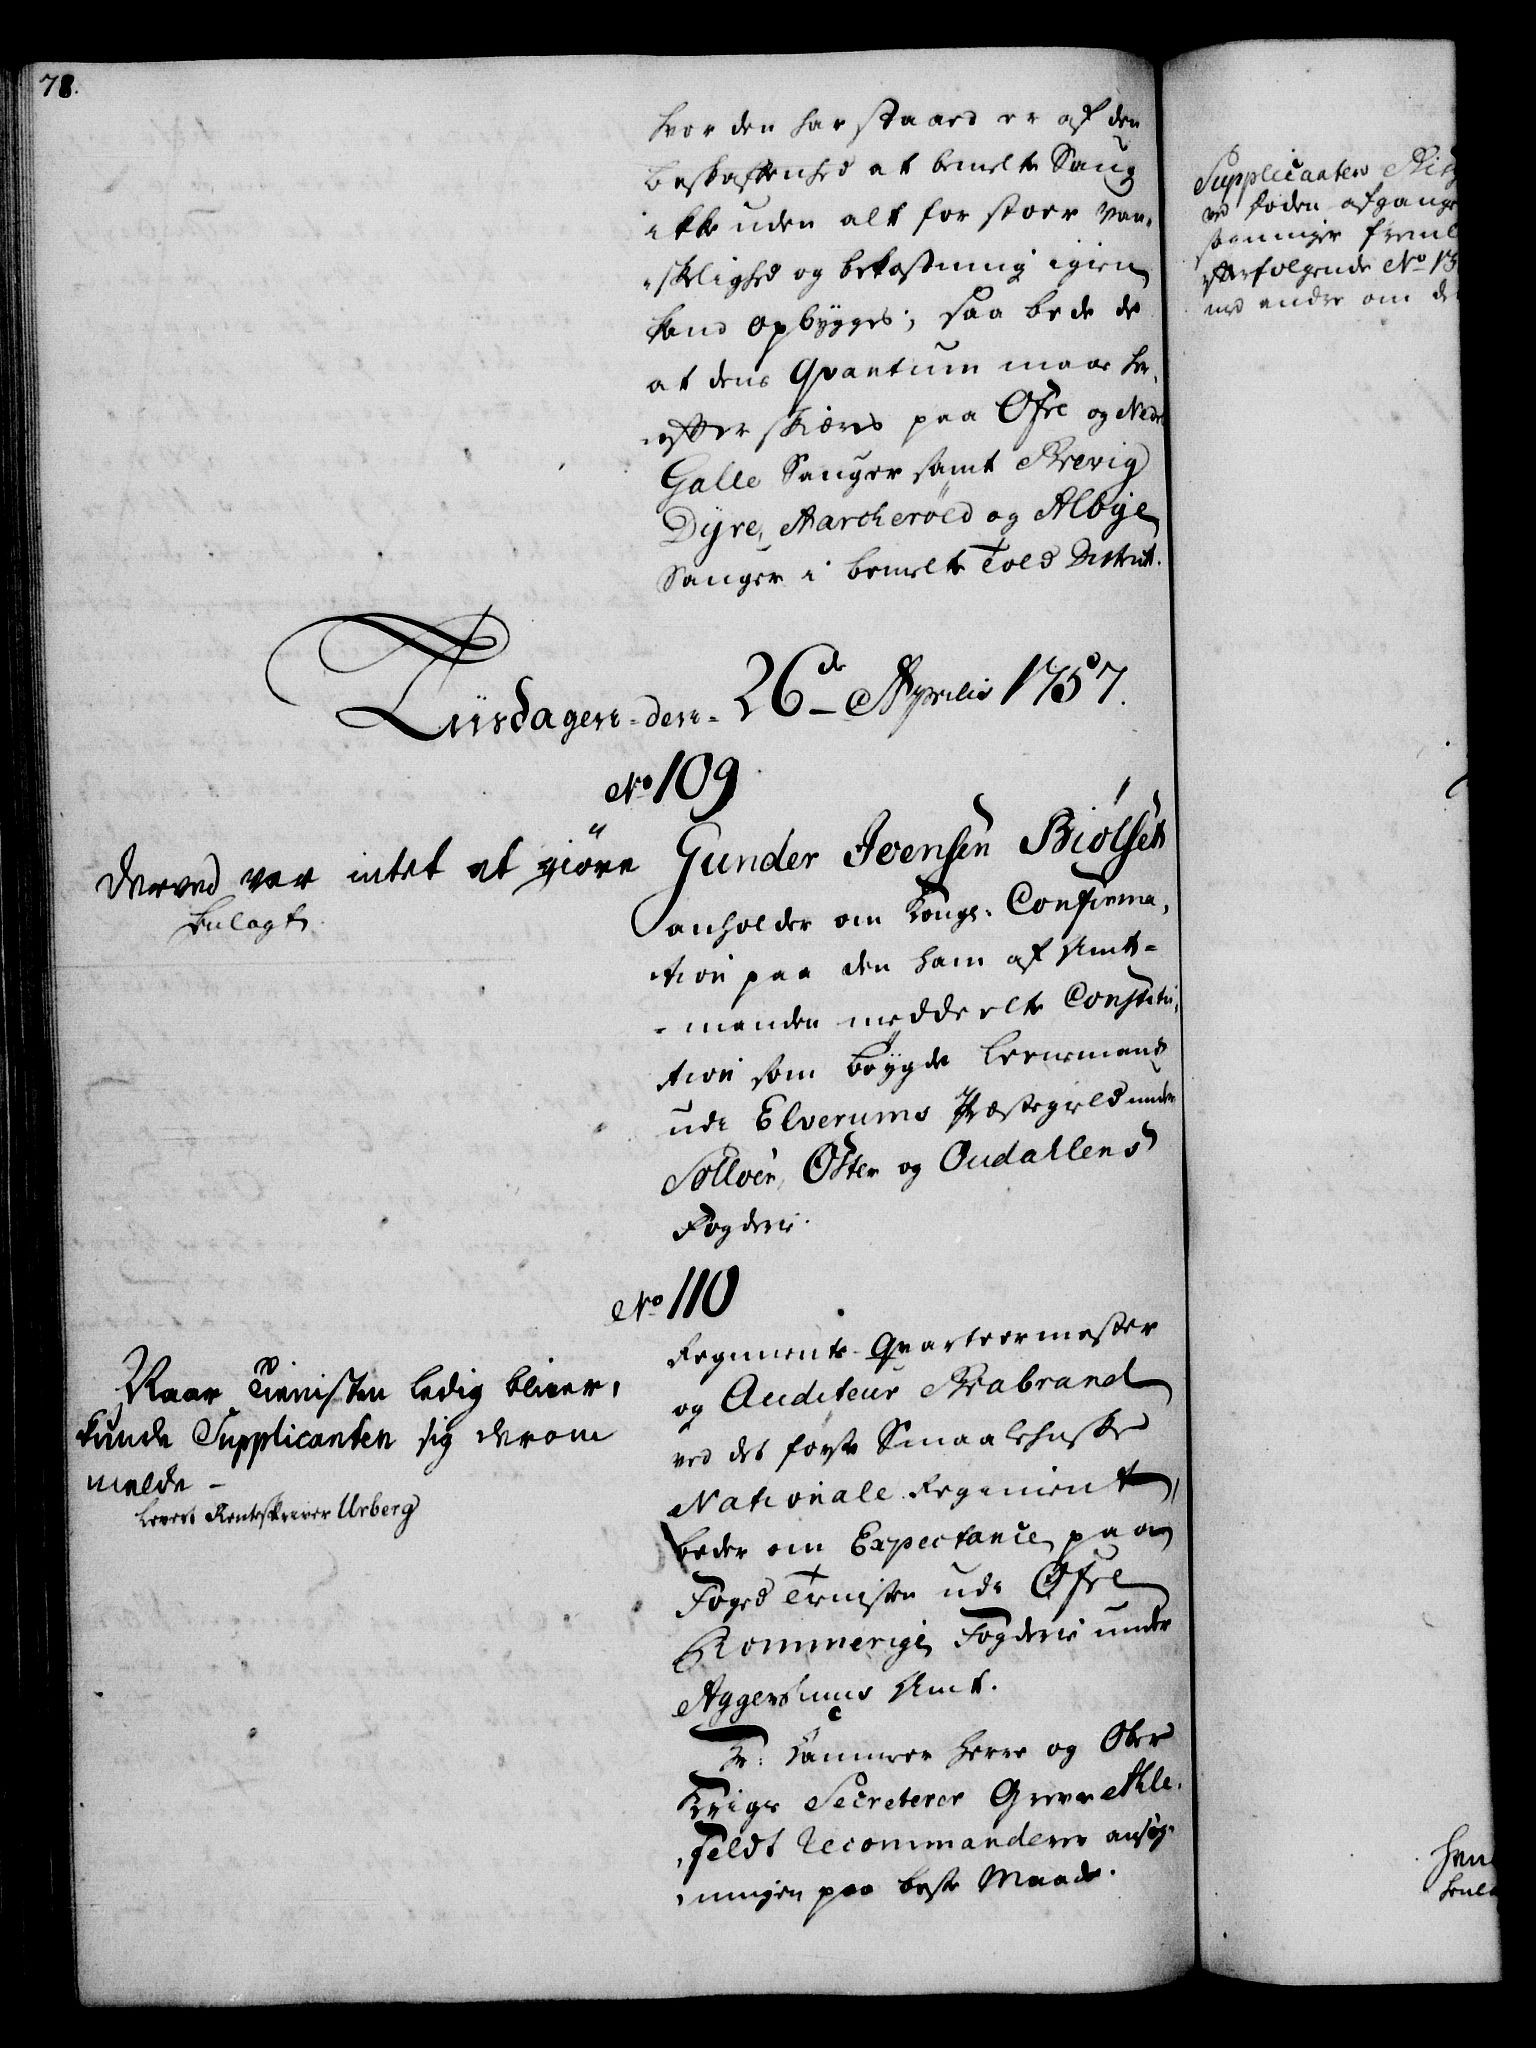 78.
hvor den har staaed er af den
beskaffenhed at bemelte Saug
ikke uden alt for stoer van-
-skelighed og bekostning igien
kand opbygges; saa bede de
at dens Qvantum maae her-
-efter skiæres paa Øfre og Nedre
Galle Sauger samt Brevig
Dyre, Aarcherøed og Albye
Sauger i bemelte Told District.
Tiisdagen-den- 26de Aprilis 1757.
No 109
Derved var intet at giøre
henlagt
Gunder Ivensen Biølset
anholder om Kongl: Confirma-
-tion paa den ham af Amt-
-manden meddeelte Constitu-
-tion som bøygde Leensmand
udi Elverums Præstegield under
Solloer, Øster og Oudahlens
Fogderie.
No 110
Naar Tienisten ledig bliver,
kunde Supplicanten sig derom
melde -
Leveret Renteskriver Urberg
Regiments-Qvarteermester
og Auditeur Brabrand
ved det første Smaalehnske
Nationale Regiment,
beder om Expectance paa
Foged Tienisten udi Øfre
Rommerige Fogderie under
Aggershuus Amt.
Hr: Cammer Herre og Ober
Krigs Secreterer Greve Ahle-
-feldt recommanderer ansøg-
-ningen paa beste Maade.
Supplicantens
ved floden afgange
efterfølgende No
med andre om de